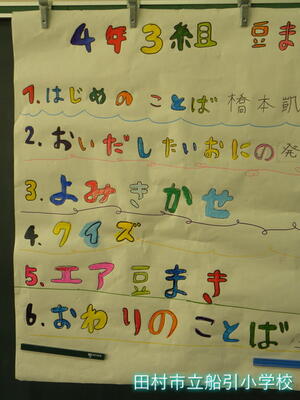 4年3組 豆ま
1.はじめの ことば 橋本凱
2.おいだしたいおにの 発
3.よみきかせ
4.クイズ
5.エア豆まき
6.おわりのことば
田村市立船引小学校